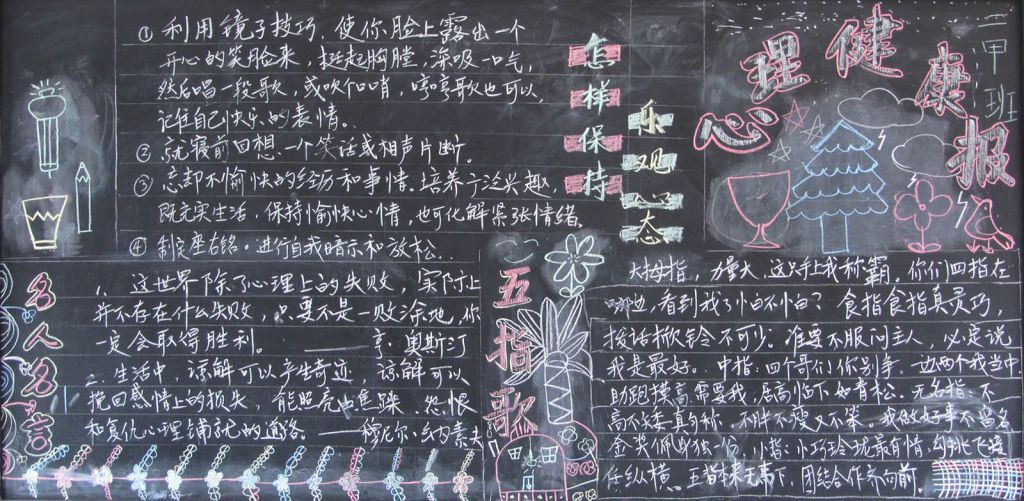 心理健康报
二甲班
怎样保持
乐观心态
① 利用镜子技巧，使你脸上露出一个
开心的笑脸来，挺起胸膛，深吸一口气，
然后唱一段歌，或吹口哨，哼哼歌也可以，
记住自己快乐的表情。
② 就寝前回想一个笑话或相声片断。
③ 忘却不愉快的经历和事情。培养广泛兴趣，
既充实生活，保持愉快心情，也可化解紧张情绪。
④ 制定座右铭。进行自我暗示和放松。
名人名言
1. 这世界除了心理上的失败，实际上
并不存在什么失败，只要不是一败涂地，你
一定会取得胜利。——亨·奥斯汀
2. 生活中，谅解可以产生奇迹，谅解可以
挽回感情上的损失，能照亮 焦躁、怨恨
和复仇心理铺就的道路。——穆尼尔·纳素夫
五指歌
大拇指，力量大，这只手上我称霸。你们四指在
哪边，看到我了怕不怕？食指食指真灵巧，
拨话揿铃不可少。谁要不服问主人，必定说
我是最好。中指：四个哥们你别争，边两个我当中
助跑摸高需要我，居高临下如青松。无名指：不
高不矮真匀称，不胖不瘦又不笨。我做好事不留名
金奖佩身独一份。小指：小巧玲珑最有情，勾
任纵横。五指 无 下，团结合作齐向前。